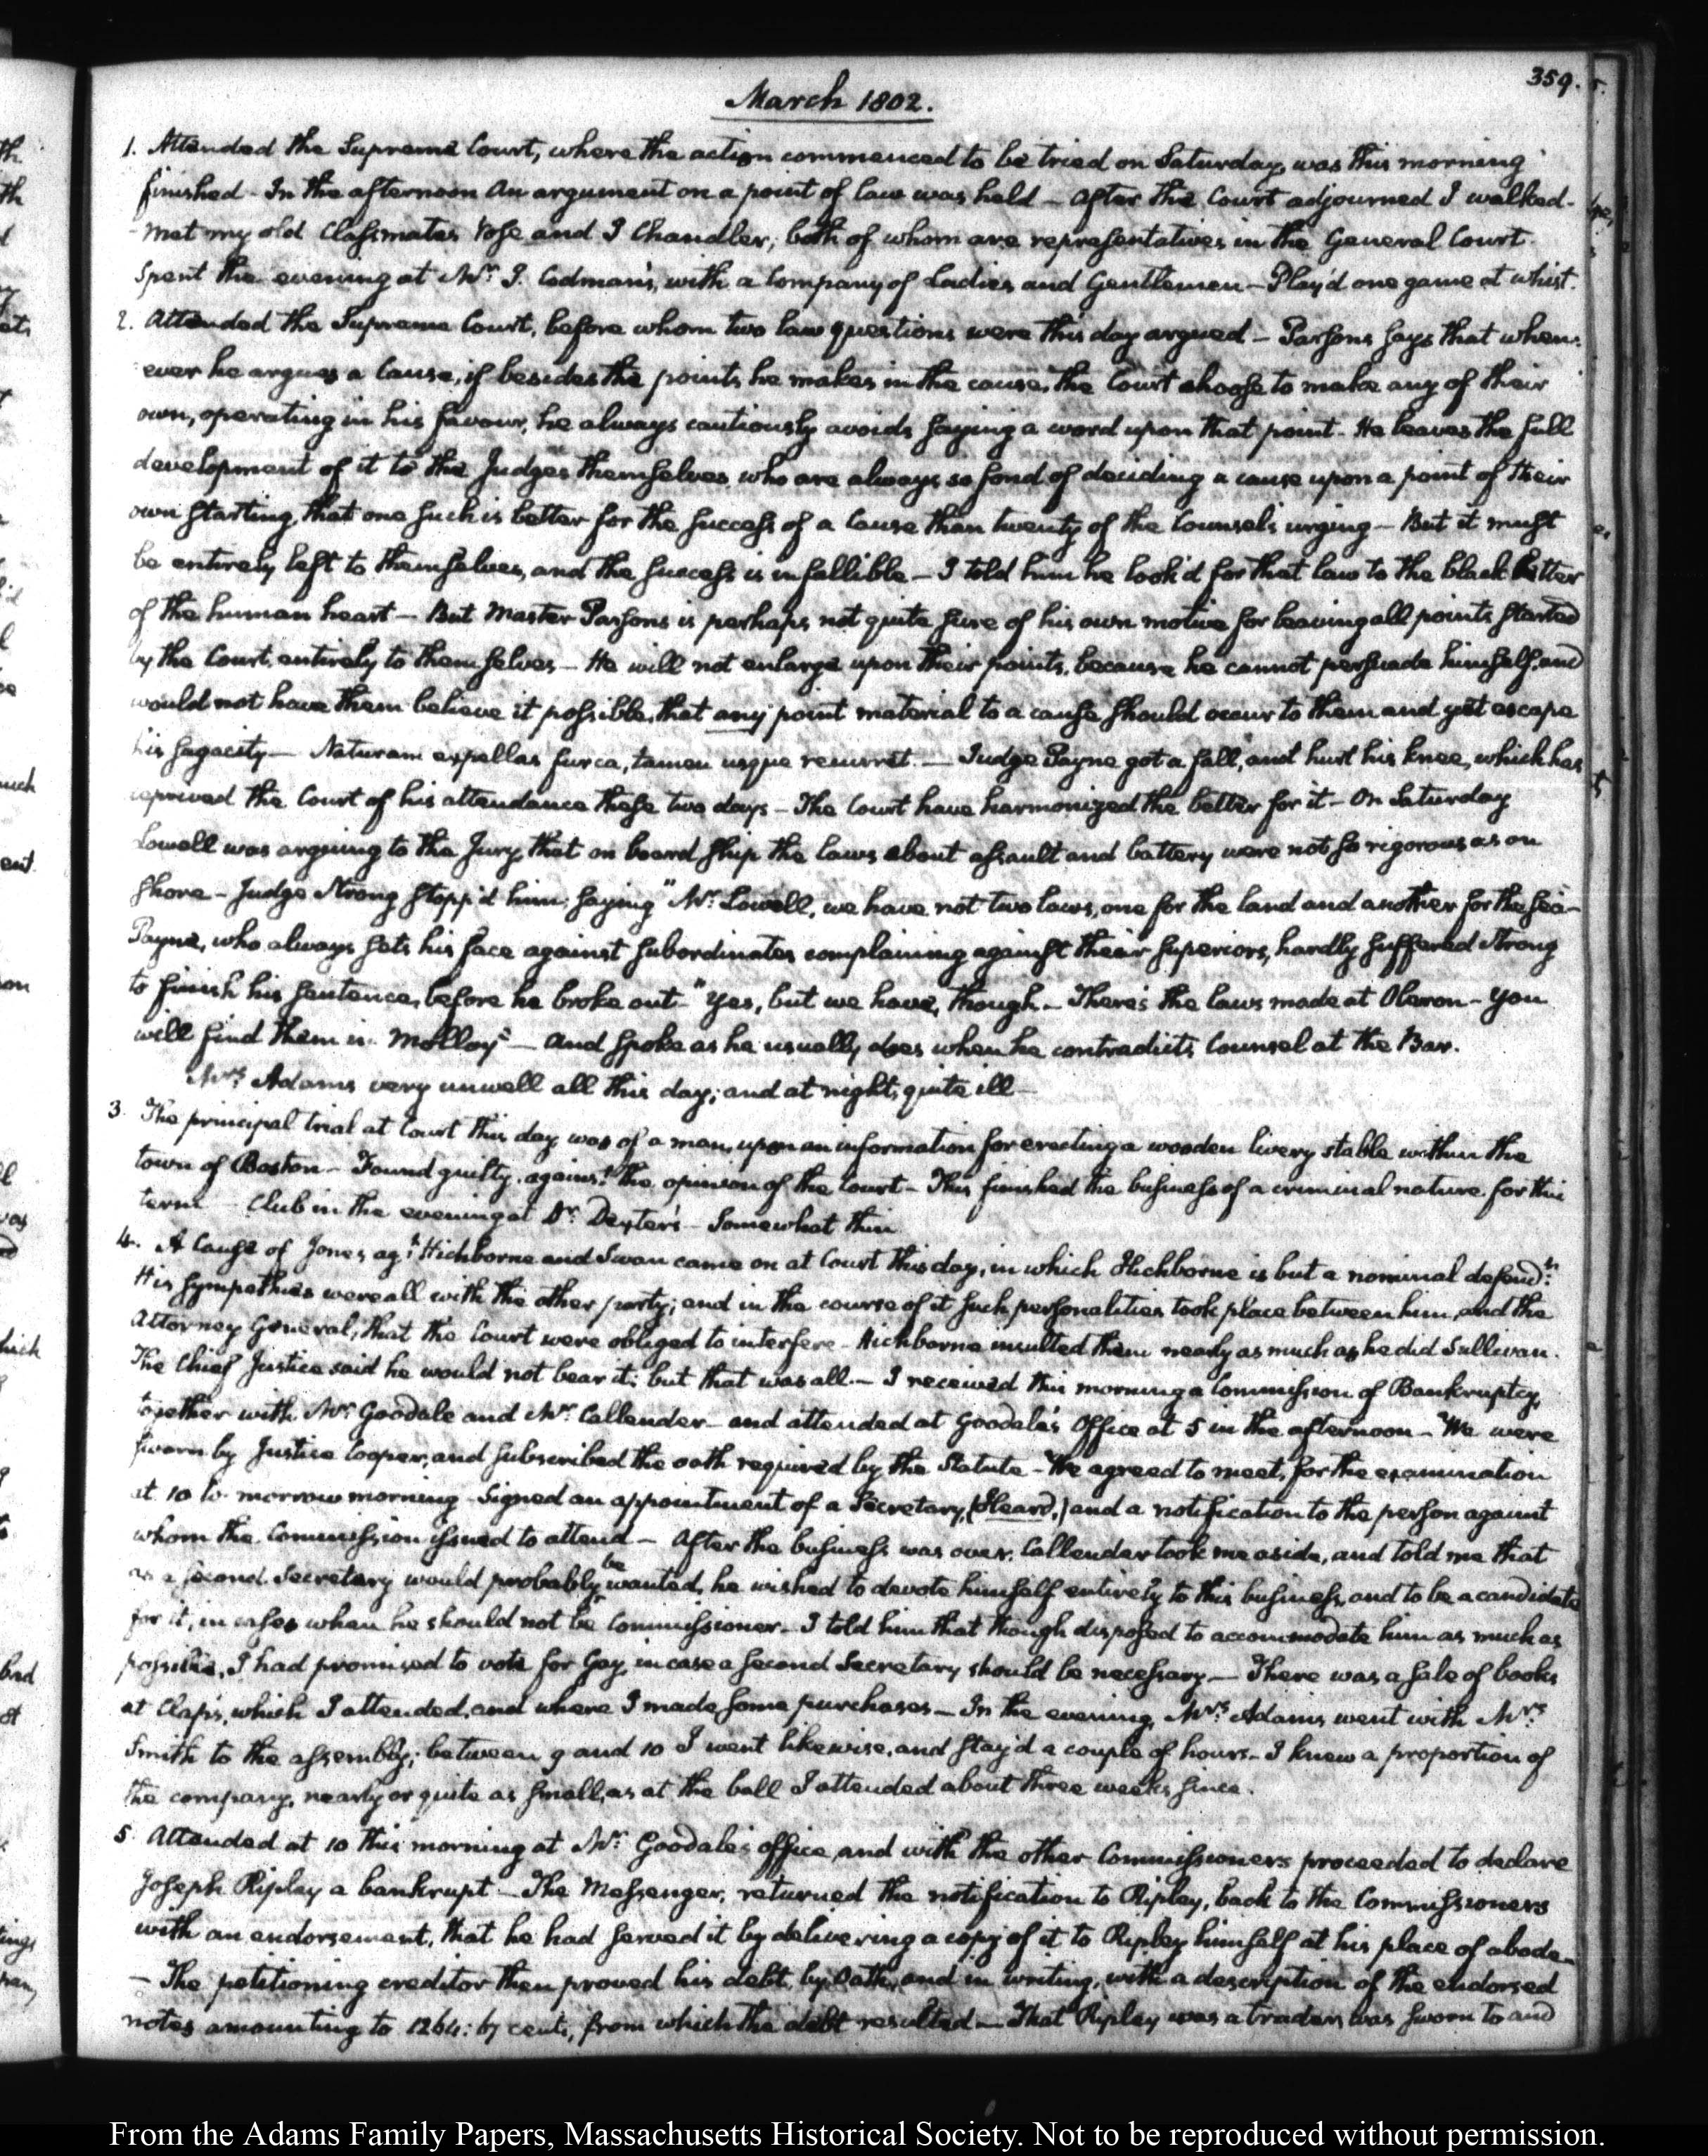 359.
March 1802.
1. Attended the Supreme Court, where the action commenced to be tried on Saturday, was this morning
finished - In the afternoon an argument on a point of law was held - After the Court adjourned I walked -
- Met my old Classmates Vose and I Chandler; both of whom are representatives in the General Court.
Spent the evening at Mr. I. Codman's, with a Company of Ladies and Gentlemen - Play'd one game at whist.
2. Attended the Supreme Court, before whom two law questions were this day argued - Parsons says that when-
ever he argues a Cause, if besides the points he makes in the cause, the Court choose to make any of their
own, operating in his favour, he always cautiously avoids saying a word upon that point. He leaves the full
development of it to the Judges themselves who are always so fond of deciding a cause upon a point of their
own starting, that one such is better for the success of a Cause than twenty of the Counsel's urging - But it must
be entirely left to themselves, and the success is infallible - I told him he look'd for that law to the black letter
of the human heart - But Master Parsons is perhaps not quite sure of his own motive for leaving all points started
by the Court, entirely to themselves - He will not enlarge upon their points, because he cannot persuade himself, and
would not have them believe it possible, that any point material to a cause should occur to them and yet escape
his sagacity - Naturam expellas furca, tamen usque recurret. - Judge Payne got a fall, and hurt his knee, which has
deprived the Court of his attendance these two days - The Court have harmonized the better for it - On Saturday
Lowell was arguing to the Jury that on board ship the laws about assault and battery were not so rigorous as on
shore - Judge Strong stopp'd him; saying "Mr. Lowell, we have not two laws, one for the land and another for the sea -
Payne, who always sets his face against subordinates complaining against their superiors, hardly suffered Strong
to finish his sentence, before he broke out - "Yes, but we have, though - There's the laws made at Oleron - You
will find them in Molloy" - And spoke as he usually does when he contradicts Counsel at the Bar.
Mrs. Adams very unwell all this day; and at night, quite ill -
3. The principal trial at Court this day was of a man, upon an information for erecting a wooden livery stable within the
town of Boston - Found guilty, against the opinion of the Court - This finished the business of a criminal nature for this
term - Club in the evening at Dr. Dexter's - Somewhat thin
4. A Cause of Jones agt. Hichborne and Swan came on at Court this day, in which Hichborne is but a nominal defendt.
His sympathies were all with the other party; and in the course of it such personalities took place between him, and the
Attorney General, that the Court were obliged to interfere - Hichborne insulted them nearly as much as he did Sullivan.
The Chief Justice said he would not bear it; but that was all. - I received this morning a Commission of Bankruptcy,
together with Mr. Goodale and Mr. Callender - and attended at Goodale's Office at 5 in the afternoon - We were
sworn by Justice Cooper, and subscribed the oath required by the Statute - We agreed to meet, for the examination
at 10 to-morrow morning - Signed an appointment of a Secretary, (Heard,) and a notification to the person against
whom the Commission issued to attend - After the business was over, Callender took me aside, and told me that
as a second Secretary would probably be wanted, he wished to devote himself entirely to this business, and to be a candidate
for it, in cases when he should not be Commissioner - I told him that though disposed to accommodate him as much as
possible, I had promised to vote for Gay, in case a second Secretary should be necessary - There was a sale of books
at Clap's, which I attended, and where I made some purchases - In the evening, Mrs. Adams went with Mrs.
Smith to the assembly; between 9 and 10 I went likewise, and stay'd a couple of hours - I knew a proportion of
the company, nearly or quite as small, as at the ball I attended about three weeks since.
5. Attended at 10 this morning at Mr. Goodale's office, and with the other Commissioners proceeded to declare
Joseph Ripley a bankrupt - The Messenger, returned the notification to Ripley, back to the Commissioners
with an endorsement, that he had served it by delivering a copy of it to Ripley himself at his place of abode -
- The petitioning creditor then proved his debt, by oath, and in writing, with a description of the endorsed
notes amounting to 1264: 67 cents, from which the debt resulted - That Ripley was a trader, was sworn to and
From the Adams Family Papers, Massachusetts Historical Society. Not to be reproduced without permission.